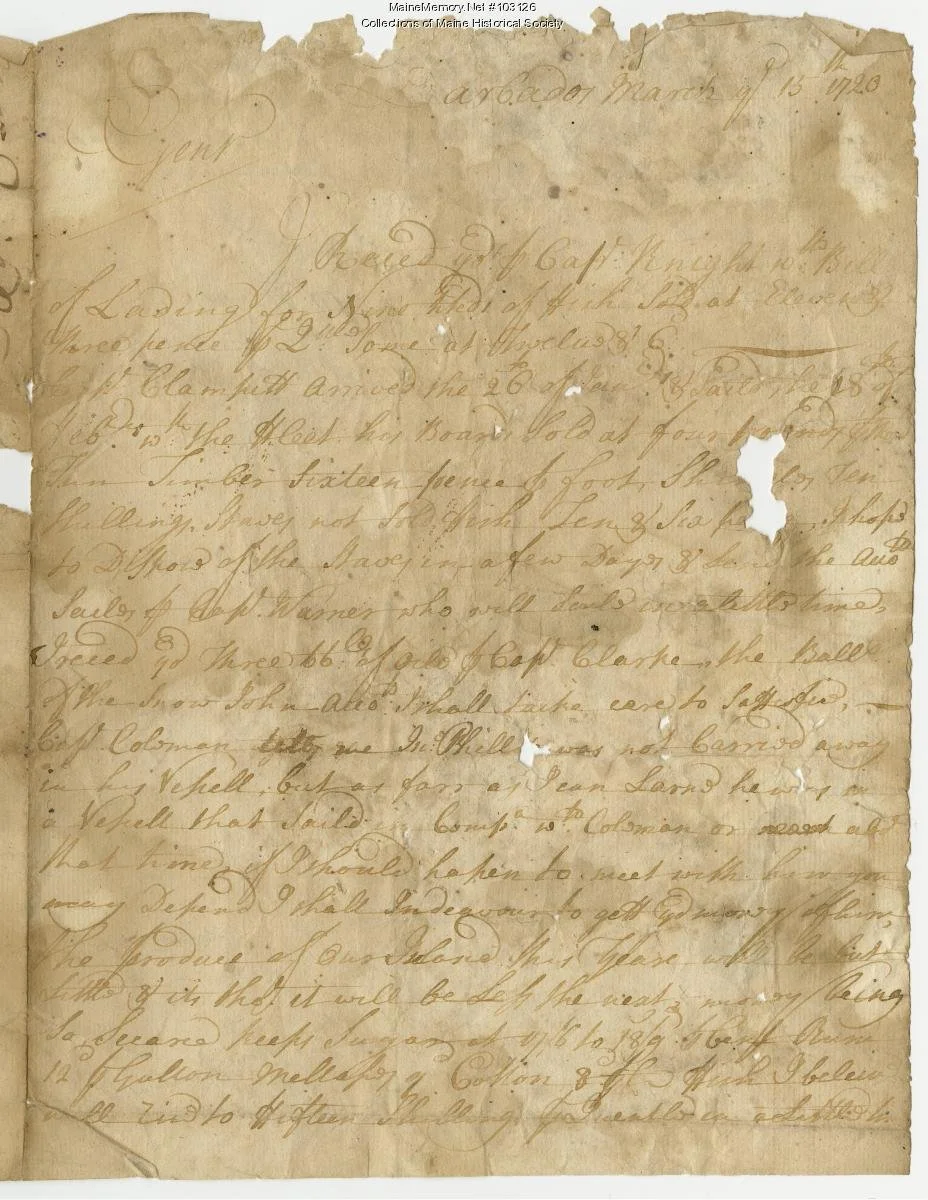 MaineMemory.Net #103126
Collections of Maine Historical Society
arbados March ye 15th 1720
Gent
I Receed yrs p Capt Knight wth Bill
of Lading for Nine Hhds of Fish Sold at Eleven &
Three pence p Some at Twelve & 6
Capt Clampitt arrived the 26 of Jany & Saild the 18th of
Feb wth the Fleet his Boards Sold at four pounds
Timber Sixteen pence p foot, Ten
Shilling, Staves not Sold fish Ten & Six I hope
to Dispose of the Staves in a few Days & Send the Acco
Sailes p Capt Warner who will Saile in a little time,
I receed yr Three bbs of Oile p Capt Clarke, the Ball
of the Snow John Acco I shall take care to Sattisfie,
Capt Coleman me Jno Phillips was not Carried away
in his Vessell, but as farr as I can Larne he was in
a Vessell that Saild in Compa wth Coleman or abt
that time, if I should hapen to meet with him you
may Depend I shall Indeavour to gett yr money of him,
The produce of Our Island this Yeare will be but
Little & its thot it will be Less the next, money being
So Scarce keeps Sugar at 17/6 to 18/9 Rum
12d p Gallon Mellasses Cotton Fish I beleve
will rise to Fifteen Shilling p Quentle in a Little